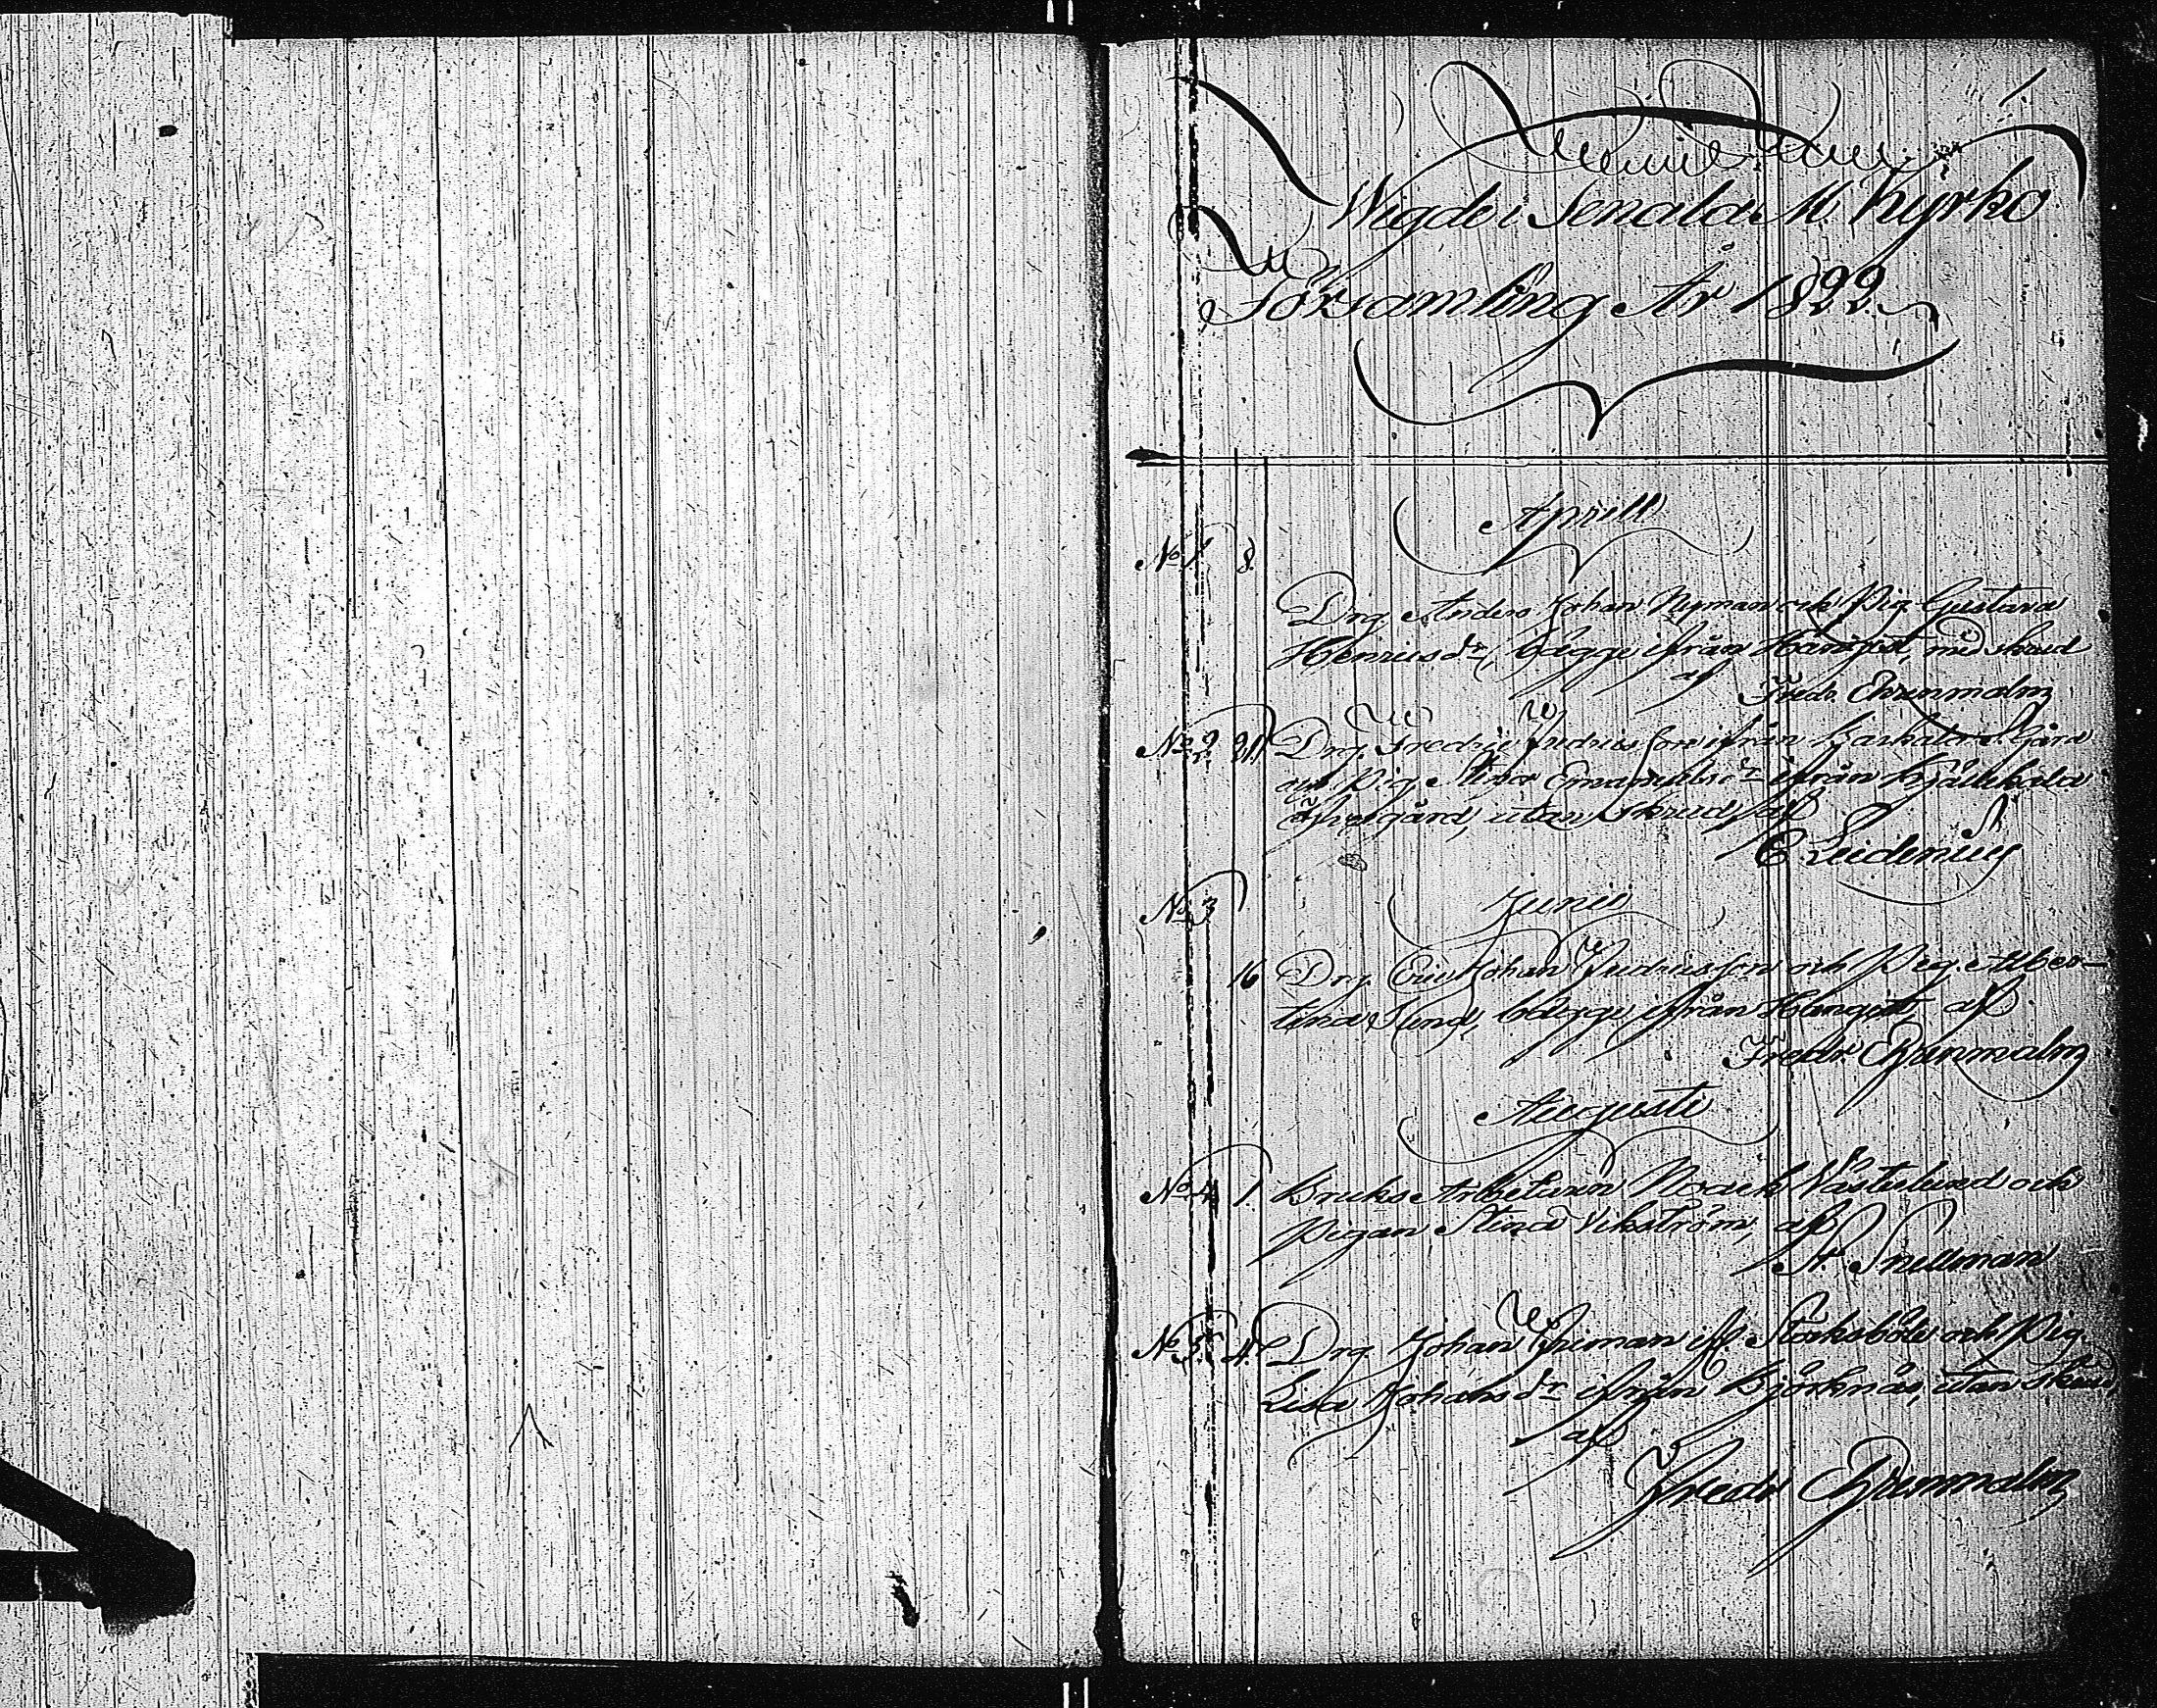 Wigde i Tenala M. Kyrko
Församling År 1822.
Aprill
No 1. 8.
Drg. Anders Johan Nyman och Pig. Gustava
Henricsdr, bägge ifrån Hangöt, med skrud
af Fredr. Ehrenmalm
No 2 21. Drg. Fredric Fredricsson ifrån gård
och Pig. Stina Emanuelsdr ifrån Kjällkåla
gård, utan skrud, af
C. Leidenius
No 3 Junii
16 Drg. Eric Johan Fredricsson och Pig. Alber-
tina Lind, bägge ifrån Hangöt, af
Fredr Ehrenmalm
Augusti
No 4 1. Bruks Arbetaren Noach Västerlund och
Pigan Stina Vikström, af
Snellman
No 5. 4. Drg. Johan Friman ifr. Storksböle och Pig.
Lisa Johansdr ifrån Björknäs, utan skrud
af
Fredr Ehrenmalm